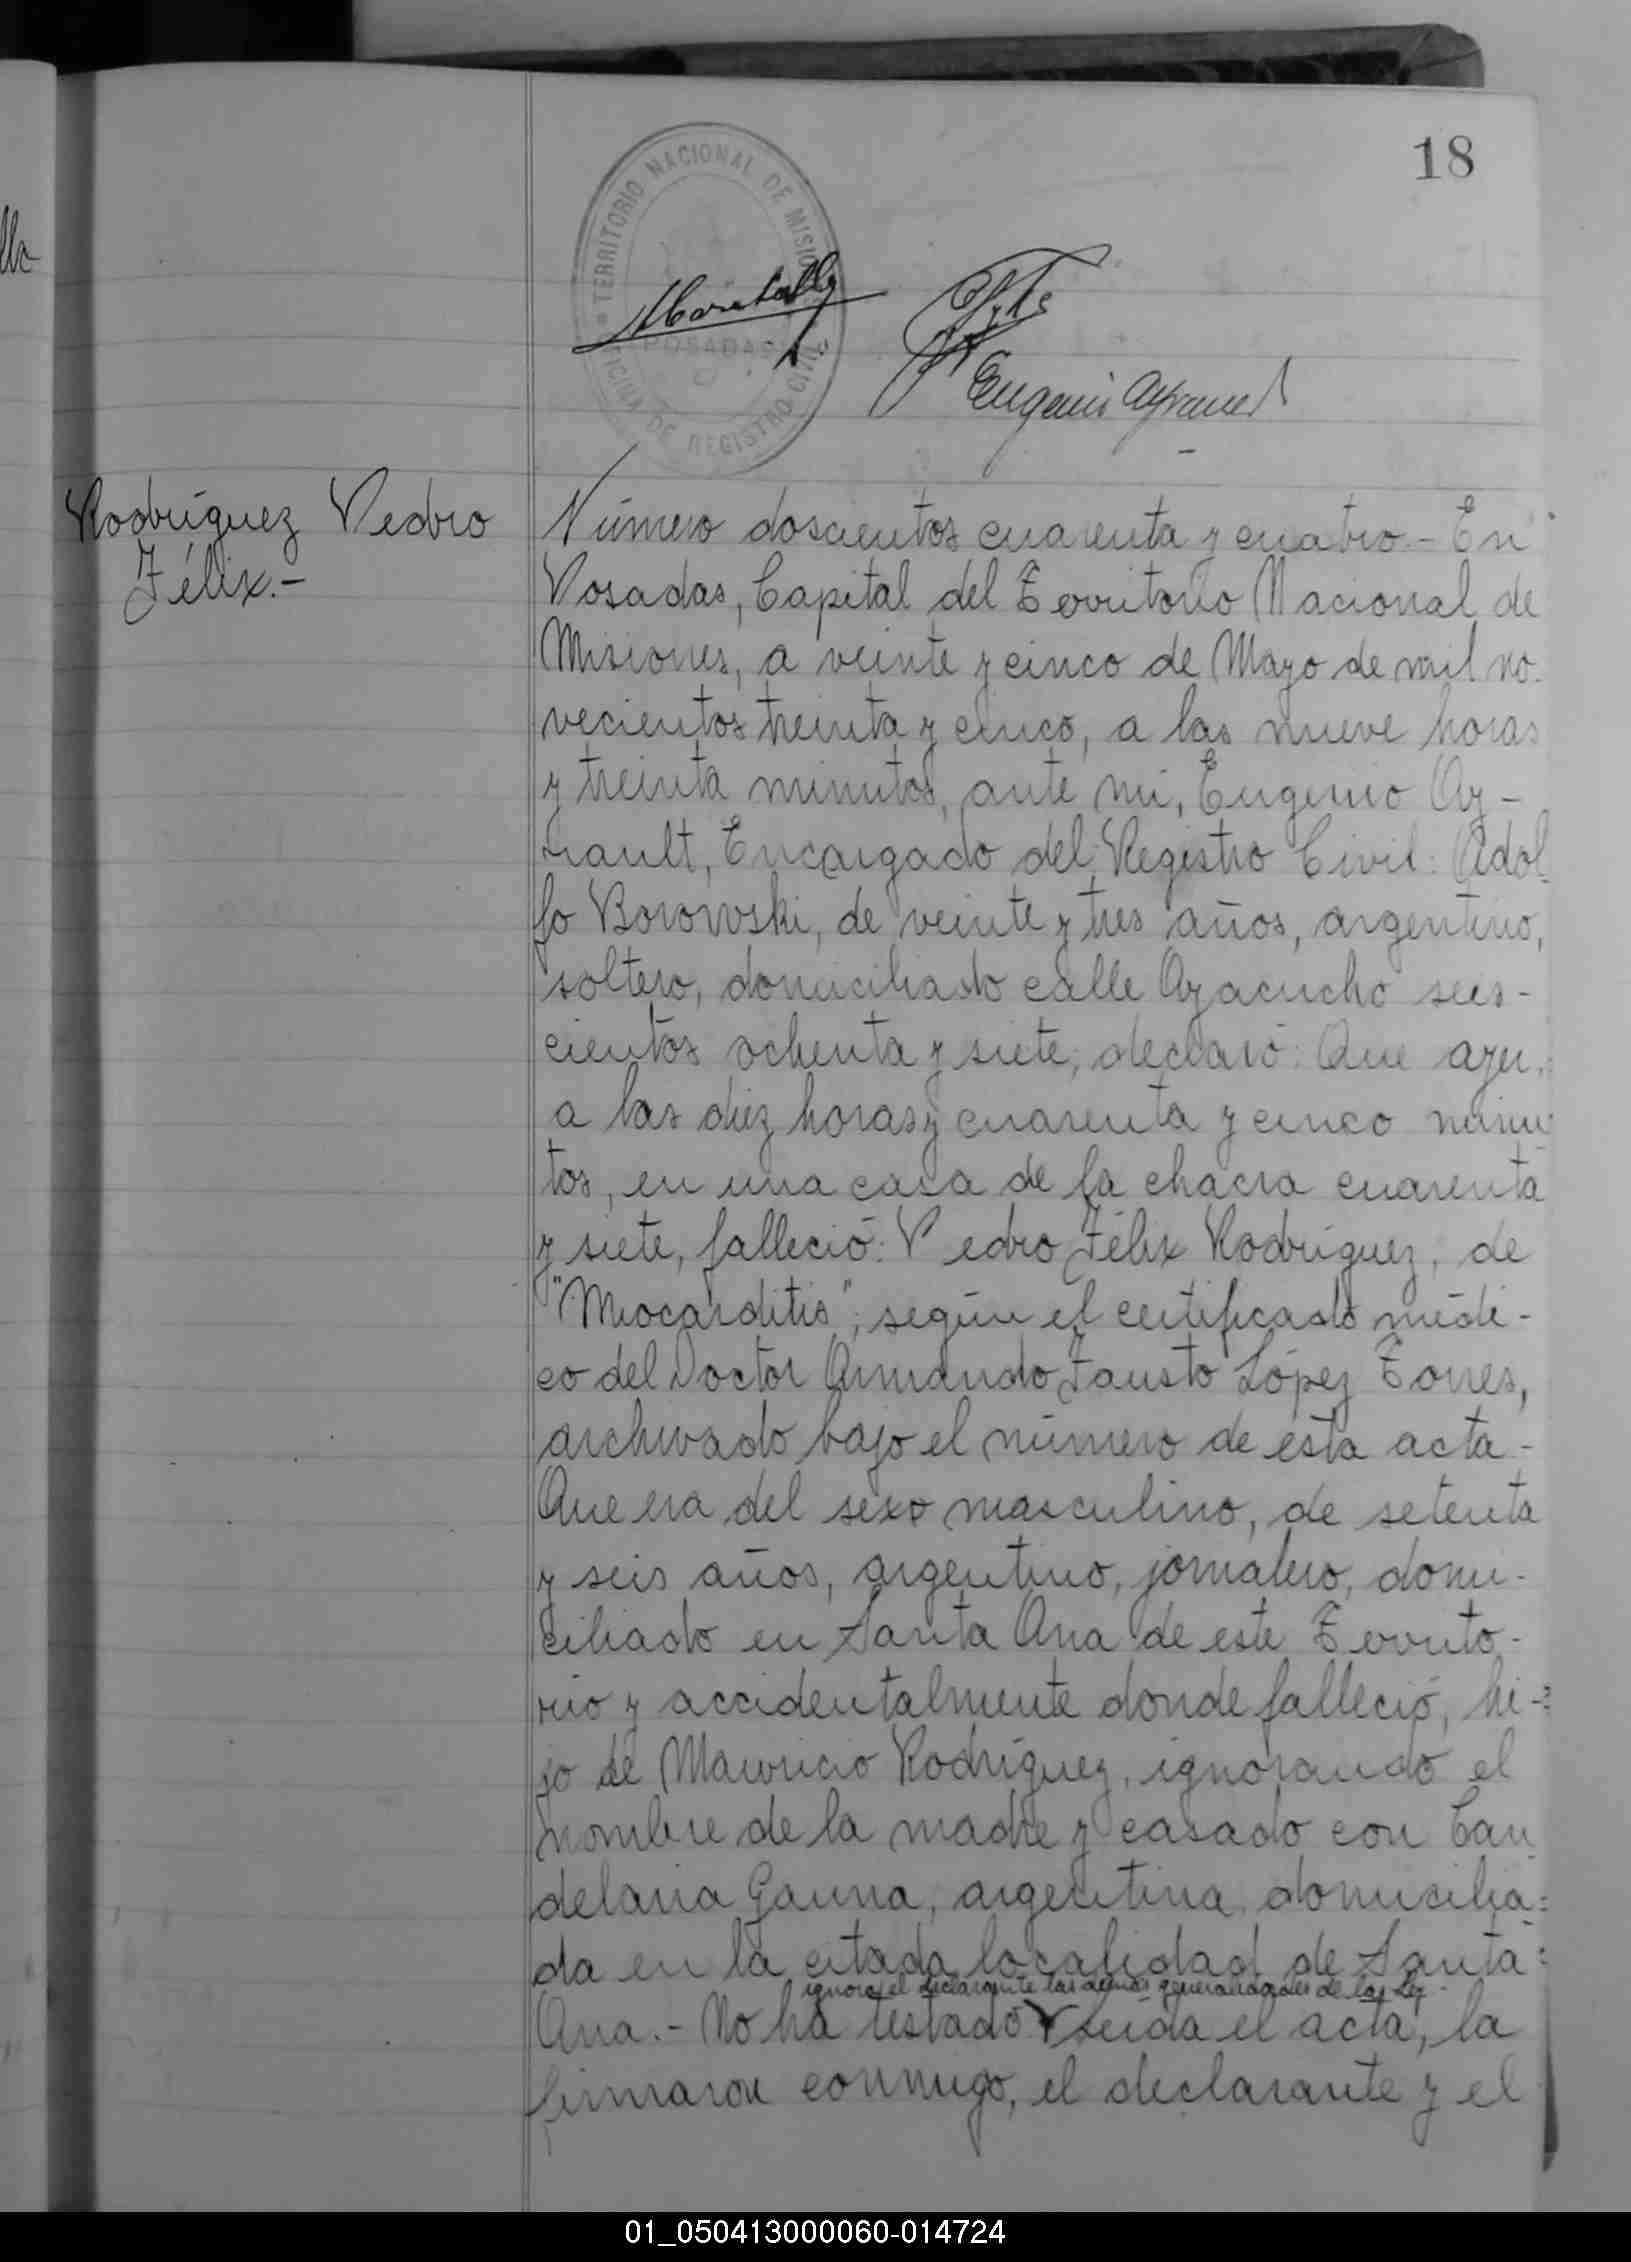 18
TERRITORIO NACIONAL DE MISIO
POSADAS
OFICINA DE REGISTRO CIVIL
Eugenio Ayrault
Rodríguez Pedro
Félix.-
Número doscientos cuarenta y cuatro.- En
Posadas, Capital del Territorio Nacional de
Misiones, a veinte y cinco de Mayo de mil no-
vecientos treinta y cinco, a las nueve horas
y treinta minutos, ante mi, Eugenio Ay-
rault, Encargado del Registro Civil: Adol-
fo Borowski, de veinte y tres años, argentino,
soltero, domiciliado calle Ayacucho seis-
cientos ochenta y siete, declaró: Que ayer,
a las diez horas y cuarenta y cinco minu-
tos, en una casa de la chacra cuarenta
y siete, falleció: Pedro Félix Rodríguez, de
"Miocarditis", según el certificado médi-
co del Doctor Armando Fausto López Torres,
archivado bajo el número de esta acta.-
Que era del sexo masculino, de setenta
y seis años, argentino, jornalero, domi-
ciliado en Santa Ana de este Territo-
rio y accidentalmente donde falleció, hi-
jo de Mauricio Rodríguez, ignorando el
nombre de la madre y casado con Can-
delaria Gauna, argentina, domicilia-
da en la citada localidad de Santa
ignora el declarante las demás generalidades de la Ley.-
Ana.- No ha testado. Leída el acta, la
firmaron conmigo, el declarante y el
01_050413000060-014724